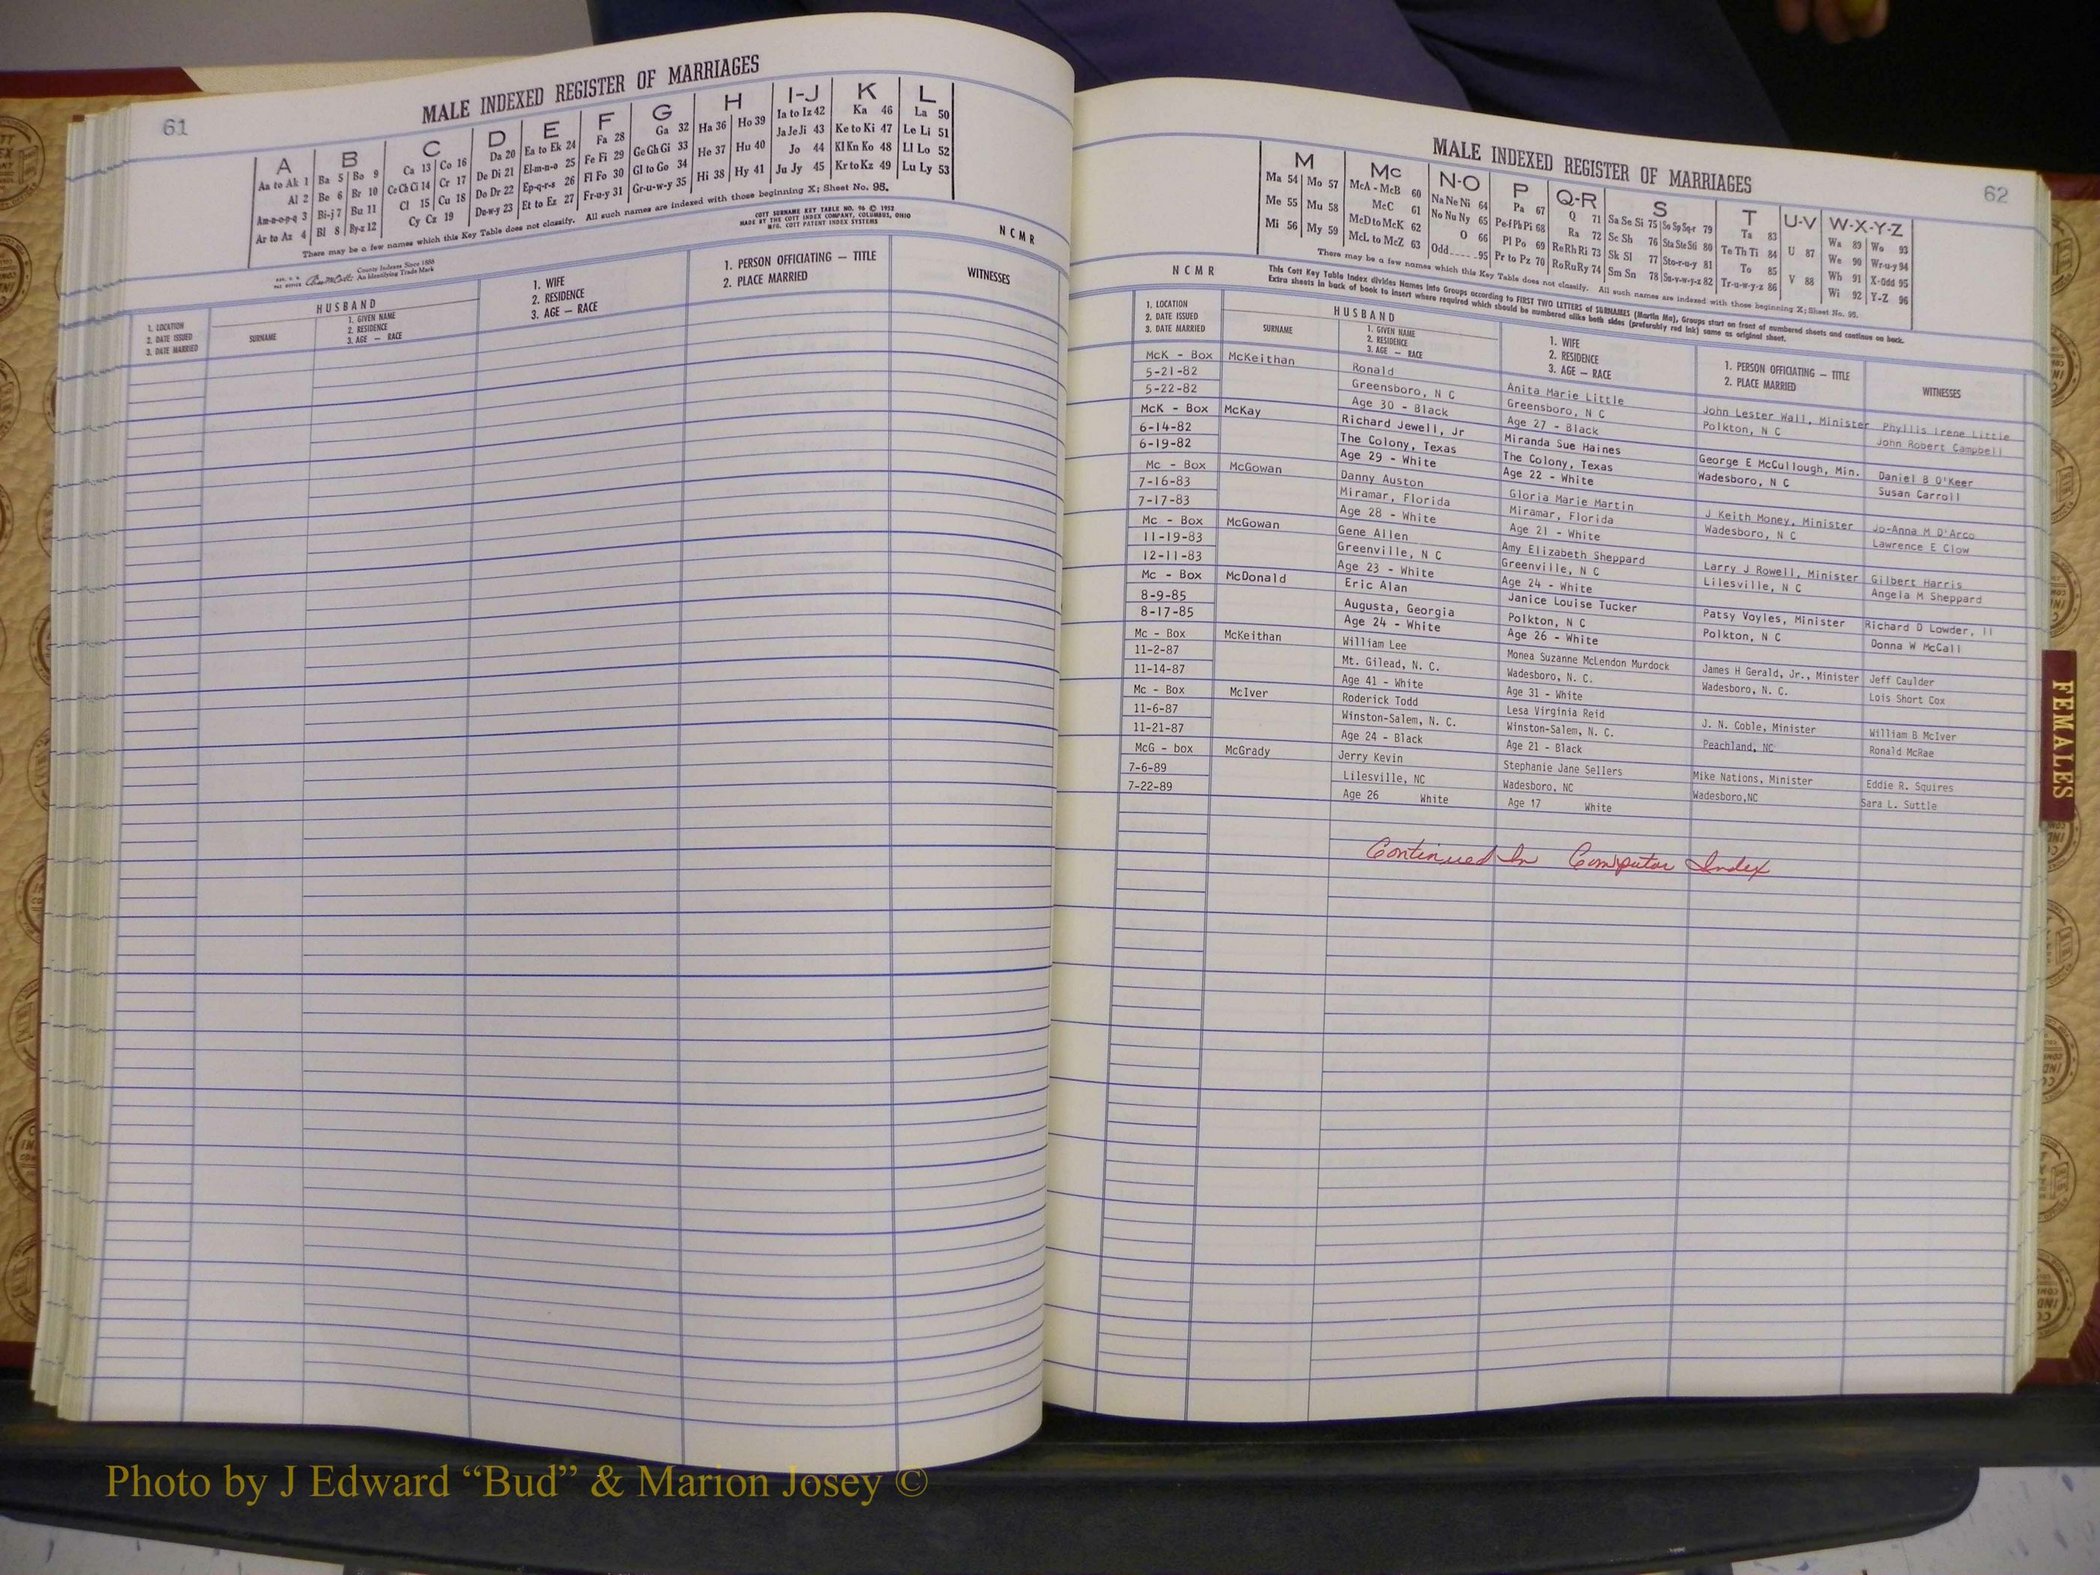 61
MALE INDEXED REGISTER OF MARRIAGES
A
Aa to Ak 1
Al 2
Am-n-o-p-q 3
Ar to Az 4
B
Ba 5 Bo 9
Be 6 Br 10
Bi-j 7 Bu 11
Bl 8 By-z 12
C
Ca 13 Co 16
Ce Ch Ci 14 Cr 17
Cl 15 Cu 18
Cy Cz 19
D
Da 20
De Di 21
Do Dr 22
Du-w-y 23
E
Ea to Ek 24
El-m-n-o 25
Ep-q-r-s 26
Et to Ez 27
F
Fa 28
Fe Fi 29
Fl Fo 30
Fr-u-y 31
G
Ga 32
Ge Gh Gi 33
Gl to Go 34
Gr-u-w-y 35
H
Ha 36 Ho 39
He 37 Hu 40
Hi 38 Hy 41
I-J
Ia to Iz 42
Ja Je Ji 43
Jo 44
Ju Jy 45
K
Ka 46
Ke to Ki 47
Kl Kn Ko 48
Kr to Kz 49
L
La 50
Le Li 51
Ll Lo 52
Lu Ly 53
There may be a few names which this Key Table does not classify. All such names are indexed with those beginning X; Sheet No. 95.
County Indexes Since 1888
An Identifying Trade Mark
COTT SURNAME KEY TABLE NO. 96 © 1952
MADE BY THE COTT INDEX COMPANY, COLUMBUS, OHIO
MFG. COTT PATENT INDEX SYSTEMS
NCMR
1. LOCATION
2. DATE ISSUED
3. DATE MARRIED
HUSBAND
SURNAME
1. GIVEN NAME
2. RESIDENCE
3. AGE — RACE
1. WIFE
2. RESIDENCE
3. AGE — RACE
1. PERSON OFFICIATING — TITLE
2. PLACE MARRIED
WITNESSES
62
MALE INDEXED REGISTER OF MARRIAGES
M
Ma 54 Mo 57
Me 55 Mu 58
Mi 56 My 59
Mc
McA - McB 60
McC 61
McD to McK 62
McL to McZ 63
N-O
Na Ne Ni 64
No Nu Ny 65
O 66
Odd 95
P
Pa 67
Pe-f Ph Pi 68
Pl Po 69
Pr to Pz 70
Q-R
Q 71
Ra 72
Re Rh Ri 73
Ro Ru Ry 74
S
Sa Se Si 75 So Sp Sq-r 79
Sc Sh 76 Sta Ste Sti 80
Sk Sl 77 Sto-r-u-y 81
Sm Sn 78 Su-v-w-y-z 82
T
Ta 83
Te Th Ti 84
To 85
Tr-u-w-y-z 86
U-V
U 87
V 88
W-X-Y-Z
Wa 89 Wo 93
We 90 Wr-u-y 94
Wh 91 X-Odd 95
Wi 92 Y-Z 96
There may be a few names which this Key Table does not classify. All such names are indexed with those beginning X; Sheet No. 95.
NCMR
This Cott Key Table Index divides Names into Groups according to FIRST TWO LETTERS of SURNAMES (Martin Ma), Groups start on front of numbered sheets and continue on back.
Extra sheets in back of book to insert where required which should be numbered alike both sides (preferably red ink) same as original sheet.
1. LOCATION
2. DATE ISSUED
3. DATE MARRIED
HUSBAND
SURNAME
1. GIVEN NAME
2. RESIDENCE
3. AGE — RACE
1. WIFE
2. RESIDENCE
3. AGE — RACE
1. PERSON OFFICIATING — TITLE
2. PLACE MARRIED
WITNESSES
McK - Box McKeithan Ronald Anita Marie Little John Lester Wall, Minister Phyllis Irene Little
5-21-82 Greensboro, N C Greensboro, N C Polkton, N C John Robert Campbell
5-22-82 Age 30 - Black Age 27 - Black
McK - Box McKay Richard Jewell, Jr Miranda Sue Haines George E McCullough, Min. Daniel B O'Keer
6-14-82 The Colony, Texas The Colony, Texas Wadesboro, N C Susan Carroll
6-19-82 Age 29 - White Age 22 - White
Mc - Box McGowan Danny Auston Gloria Marie Martin J Keith Money, Minister Jo-Anna M D'Arco
7-16-83 Miramar, Florida Miramar, Florida Wadesboro, N C Lawrence E Clow
7-17-83 Age 28 - White Age 21 - White
Mc - Box McGowan Gene Allen Amy Elizabeth Sheppard Larry J Rowell, Minister Gilbert Harris
11-19-83 Greenville, N C Greenville, N C Lilesville, N C Angela M Sheppard
12-11-83 Age 23 - White Age 24 - White
Mc - Box McDonald Eric Alan Janice Louise Tucker Patsy Voyles, Minister Richard D Lowder, II
8-9-85 Augusta, Georgia Polkton, N C Polkton, N C Donna W McCall
8-17-85 Age 24 - White Age 26 - White
Mc - Box McKeithan William Lee Monea Suzanne McLendon Murdock James H Gerald, Jr., Minister Jeff Caulder
11-2-87 Mt. Gilead, N. C. Wadesboro, N. C. Wadesboro, N. C. Lois Short Cox
11-14-87 Age 41 - White Age 31 - White
Mc - Box McIver Roderick Todd Lesa Virginia Reid J. N. Coble, Minister William B McIver
11-6-87 Winston-Salem, N. C. Winston-Salem, N. C. Peachland, NC Ronald McRae
11-21-87 Age 24 - Black Age 21 - Black
McG - box McGrady Jerry Kevin Stephanie Jane Sellers Mike Nations, Minister Eddie R. Squires
7-6-89 Lilesville, NC Wadesboro, NC Wadesboro,NC Sara L. Suttle
7-22-89 Age 26 White Age 17 White
Continued In Computor Index
FEMALES
Photo by J Edward “Bud” & Marion Josey ©